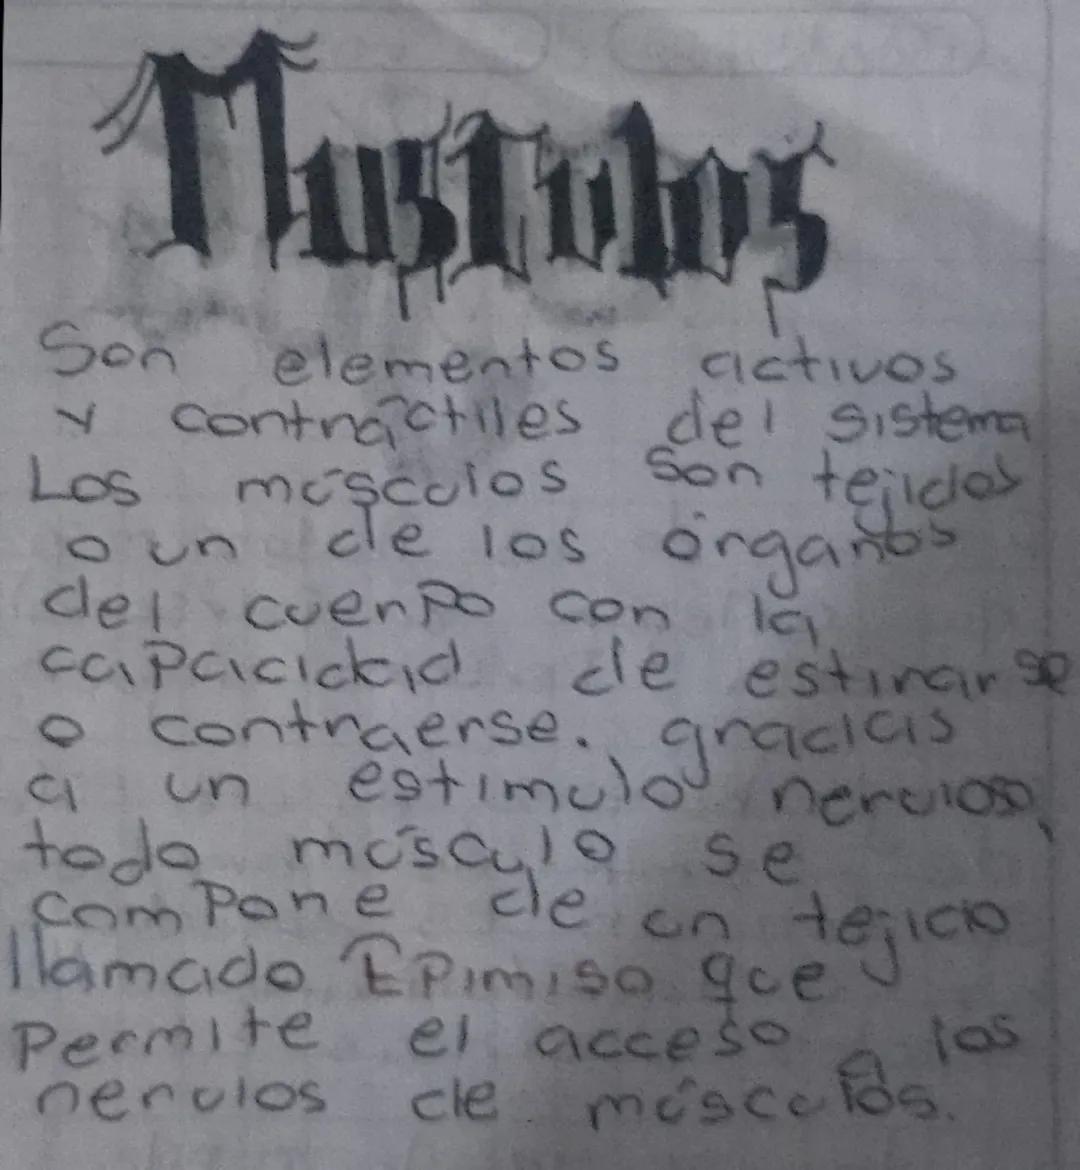 Musculos
Son elementos activos
y contráctiles del sistema
Los músculos son tejidos
o un de los órganos
del cuerpo con la
capacidad de estirarse
o contraerse. gracias
a un estimulo nervioso,
todo músculo se
compone de un tejido
llamado Epimiso que
permite el acceso a los
nervios de músculos.